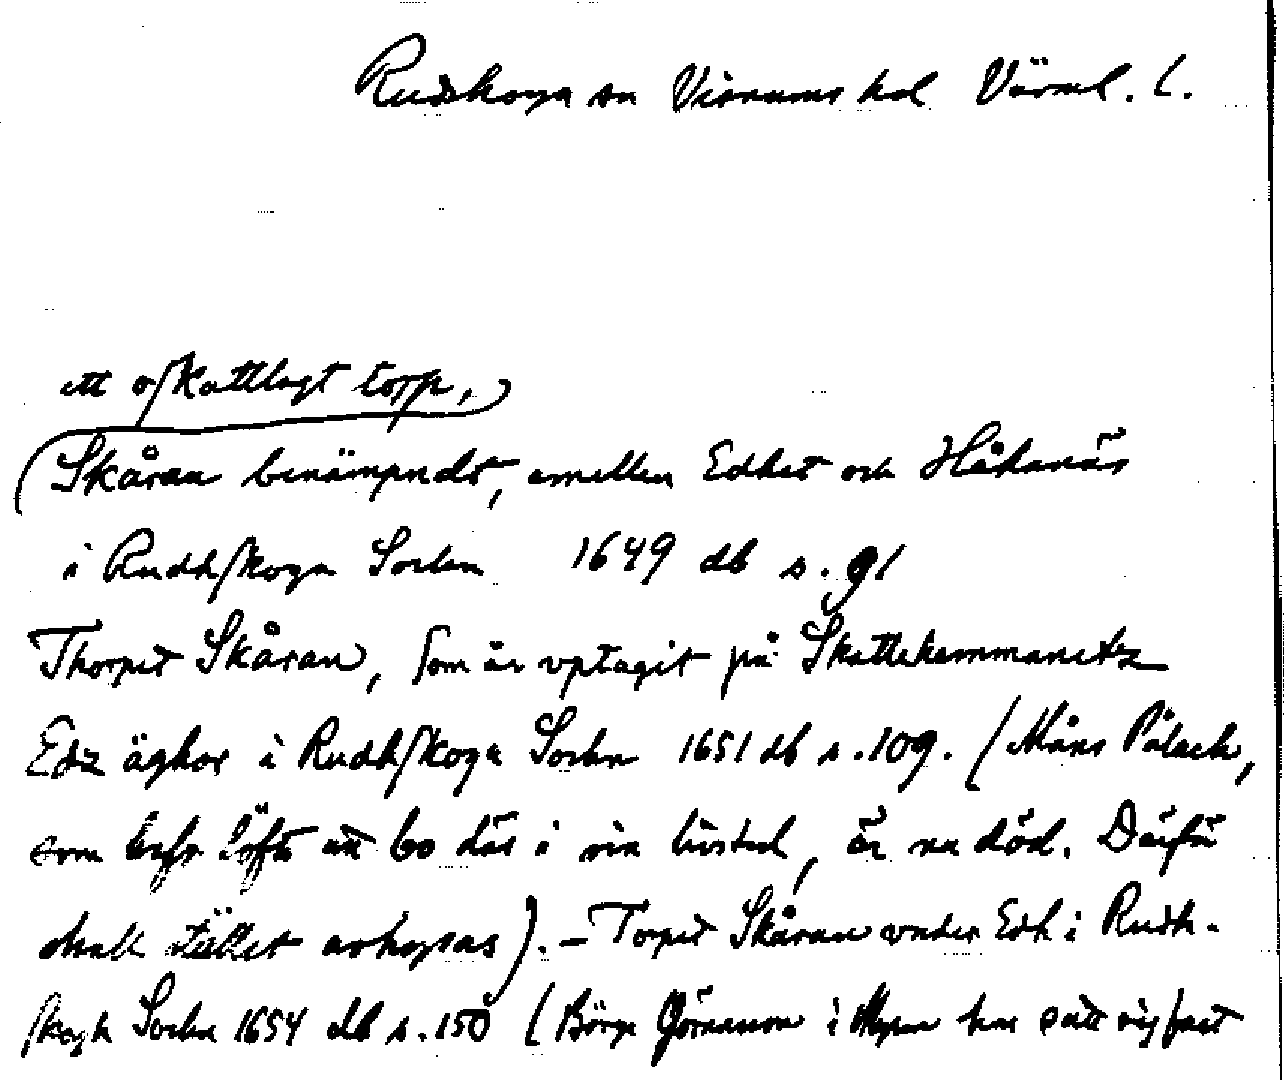 Rudskoga sn Visnums hd Värml. l.
ett oskattlagt torp,
(Skåran benämpndt, emellen Edhet och Håkanäs
i Rudhskoga Sochn 1649 db s. 91
Thorpet Skåran, som är vptagit på Skattehemmanetz
Edz äghor i Rudhskoga Sochn 1651 db s. 109. (Måns Pålack,
som haft löfte att bo där i sin lifstid, är nu död. Därför
skall stället avhysas). – Torpet Skåran vnder Edh i Rudh-
skogh Sochn 1654 db s. 150 (Börge Jönsson i har satt sig fast